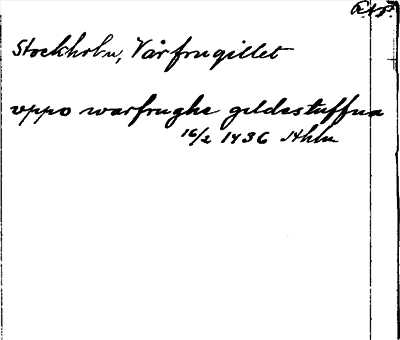 Stockholm, Vårfrugillet
vppo warfrughe gildestuffun
16/2 1436 Sthlm